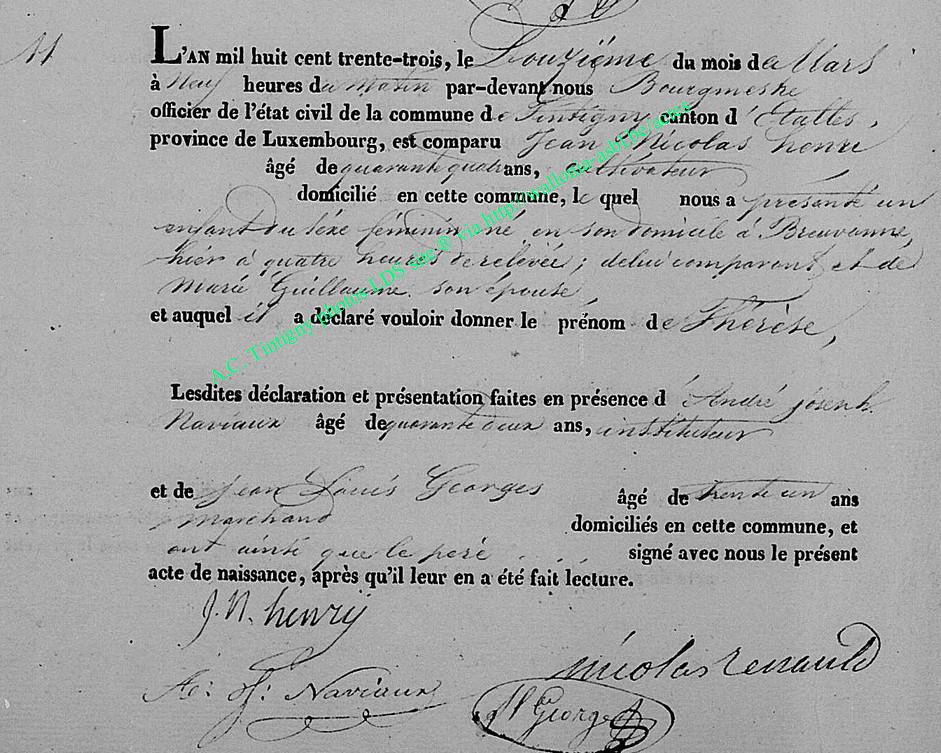 11
L'AN mil huit cent trente-trois, le Douzième du mois de Mars
à Neuf heures du Matin par-devant nous Bourgmestre
officier de l'état civil de la commune de Tintigny canton d'Etalles,
province de Luxembourg, est comparu Jean Nicolas henri
âgé de quarante quatre ans, cultivateur
domicilié en cette commune, le quel nous a présenté un
enfant du séxe féminin né en son domicile à Breuvanne,
hier à quatre heures de relevée; de lui comparant et de
Marie Guillaume son épouse,
et auquel il a déclaré vouloir donner le prénom de Thérèse,
Lesdites déclaration et présentation faites en présence d'André joseph
Naviaux âgé de quarante deux ans, instituteur
et de jean Louis Georges âgé de trente un ans
Marchand domiciliés en cette commune, et
ont ainsi que le peré signé avec nous le présent
acte de naissance, après qu'il leur en a été fait lecture.
J. N. henry
nicolas renauld
A: J: Naviaux
Georges
A.C. Tintigny photos LDS asc ® via http://wallonia-asbl.be/actes